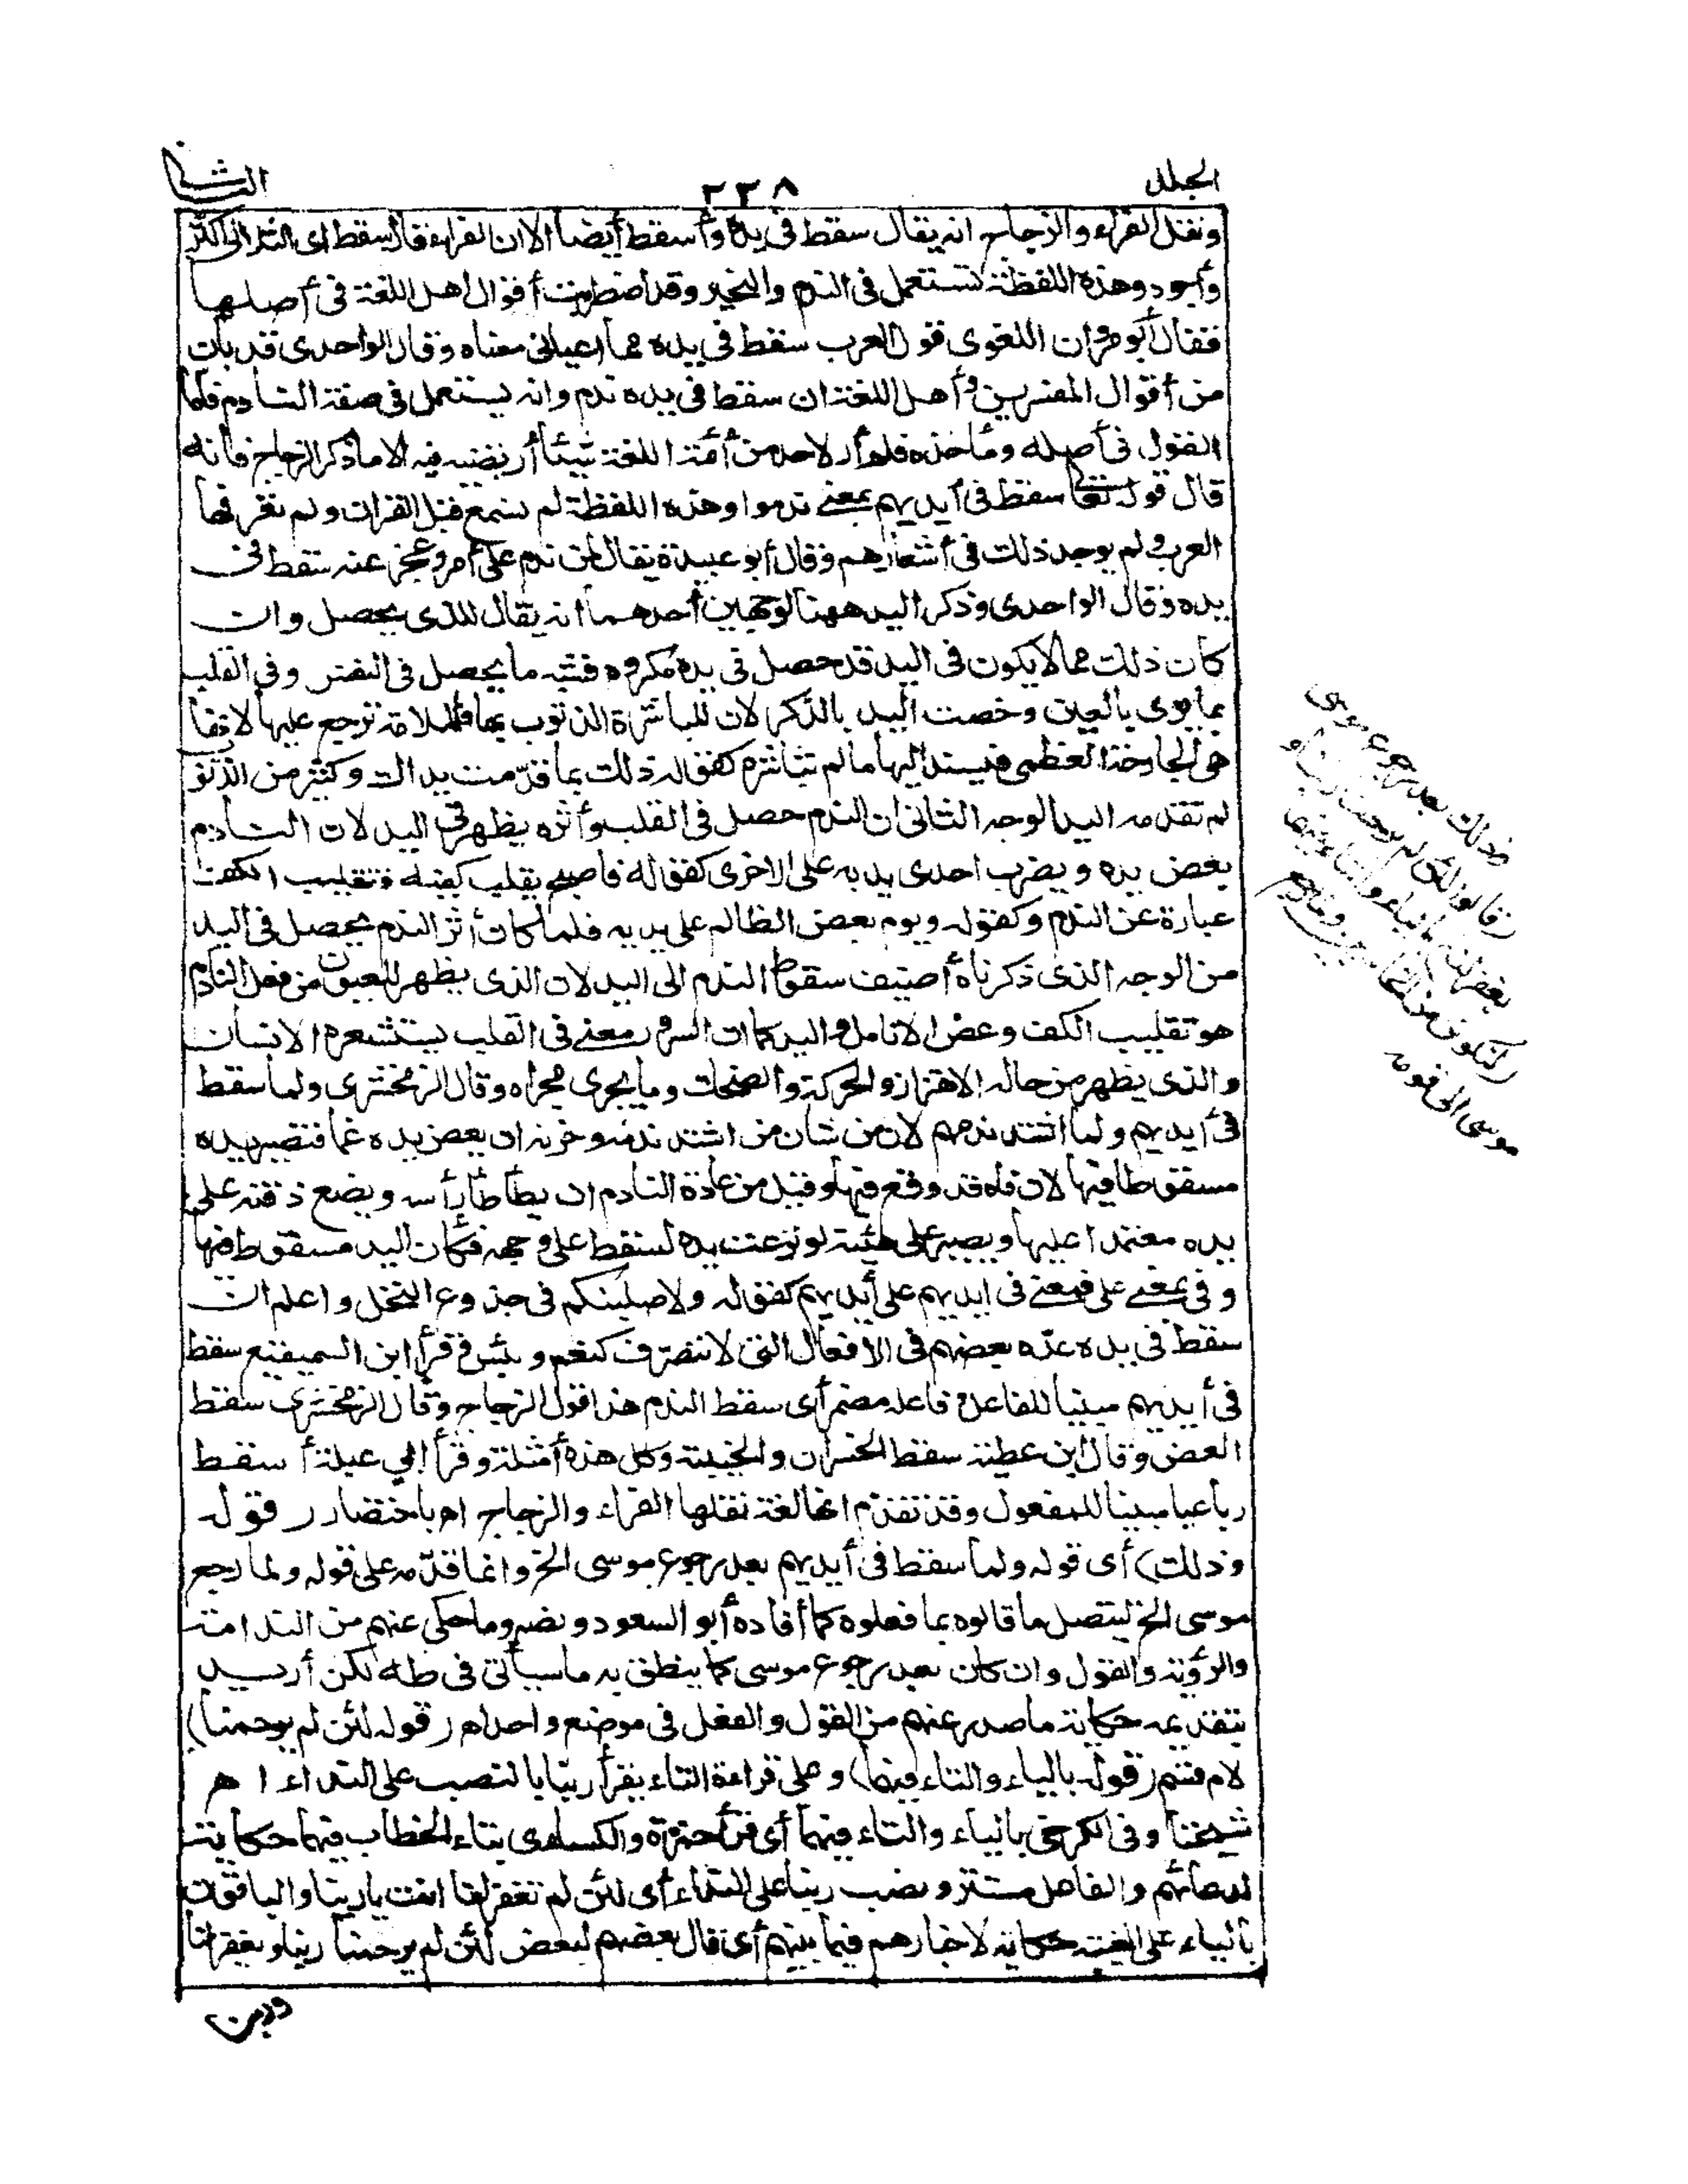 الجلد
٢٣٨
الثانى
ونقل الفراء والزجاج انه يقال سقط فى يده وأسقط أيضا الا ان الفراء قال سقط اى الثلاثى اكثر
وأجود وهذه اللفظة تستعمل فى الندم والتحير وقد اضطربت أقوال اهل اللغة فى أصلها
فقال أبو مروان اللغوى قول العرب سقط فى يده مما اعيانى معناه وقال الواحدى قد بان
من أقوال المفسرين وأهل اللغة ان سقط فى يده ندم وانه يستعمل فى صفة النادم فأما
القول فى أصله ومأخذه فلم أر لاحد من أئمة اللغة شيئا أرتضيه فيه الا ما ذكر الزجاج فانه
قال قوله تعالى سقط فى أيديهم بمعنى ندموا وهذه اللفظة لم تسمع قبل القران ولم تعرفها
العرب ولم يوجد ذلك فى أشعارهم وقال أبو عبيدة يقال لمن ندم على أمر وعجز عنه سقط فى
يده وقال الواحدى وذكر اليد ههنا لوجهين أحدهما انه يقال للذى يحصل وان
كان ذلك مما لا يكون فى اليد قد حصل فى يده مكروه فشبه ما يحصل فى النفس وفى القلب
بما يرى بالعين وخصت اليد بالذكر لان مباشرة الذنوب بها فالملامة ترجع عليها لانها
هى الجارحة العظمى فيسند اليها ما لم تباشره كقوله ذلك بما قدمت يداك وكثير من الذنوب
لم تقدمه اليد الوجه الثانى ان الندم حصل فى القلب وأثره يظهر فى اليد لان النادم
يعض يده ويضرب احدى يديه على الاخرى كقوله فأصبح يقلب كفيه فتقليب الكف
عبارة عن الندم وكقوله ويوم يعض الظالم على يديه فلما كان أثر الندم يحصل فى اليد
من الوجه الذى ذكرناه أضيف سقوط الندم الى اليد لان الذى يظهر للعيون من فعل النادم
هو تقليب الكف وعض الانامل واليد كما ان السرور معنى فى القلب يستشعره الانسان
والذى يظهر من حاله الاهتزاز والحركة والضحك وما يجرى مجراه وقال الزمخشرى ولما سقط
فى أيديهم ولما اشتد ندمهم لان من شان من اشتد ندمه وحزنه ان يعض يده غما فتصير يده
مسقوطا فيها لان فاه قد وقع فيها وقيل من عادة النادم ان يطأطأ رأسه ويضع ذقنه على
يده معتمدا عليها ويصير على هيئة لو نزعت يده لسقط على وجهه فكان اليد مسقوط فيها
وفى بمعنى على فمعنى فى ايديهم على أيديهم كقوله ولاصلبنكم فى جذوع النخل واعلم ان
سقط فى يده عده بعضهم فى الافعال التى لا تتصرف كنعم وبئس وقرأ ابن السميفع سقط
فى أيديهم مبنيا للفاعل وفاعله مضمر أى سقط الندم هذا قول الزجاج وقال الزمخشرى سقط
العض وقال ابن عطية سقط الخسران والخيبة وكل هذه أمثلة وقرأ ابن أبي عبلة أسقط
رباعيا مبنيا للمفعول وقد تقدم انها لغة نقلها الفراء والزجاج اه باختصار (قوله
وذلك) أى قوله ولما سقط فى أيديهم بعد رجوع موسى الخ وانما قدمه على قوله ولما رجع
موسى الخ ليتصل ما قالوه بما فعلوه كما أفاده أبو السعود ونصه وما حكى عنهم من الندامة
والرؤية والقول وان كان بعد رجوع موسى كما ينطق به ما سيأتى فى طه لكن أريد
بتقديمه حكاية ما صدر عنهم من القول والفعل فى موضع واحد اه (قوله لئن لم يرحمنا)
لام قسم (قوله بالياء والتاء فيهما) وعلى قراءة التاء يقرأ ربنا بالنصب على النداء ا ه
شيخنا وفى الكرخى بالياء والتاء فيهما أى قرأ حمزة والكسائى بتاء الخطاب فيهما حكاية
لدعائهم والفاعل مستتر ونصب ربنا على النداء أى لئن لم تغفر لنا انت يا ربنا والباقون
بالياء على الغيبة حكاية لاخبارهم فيما بينهم أى قال بعضهم لبعض لئن لم يرحمنا ربنا ويغفر لنا
وذلك بعد رجوع موسى
(قالوا لئن لم يرحمنا ربنا و
يغفر لنا) بالياء والتاء فيهما
(لنكونن من الخاسرين ولما رجع
موسى الى قومه